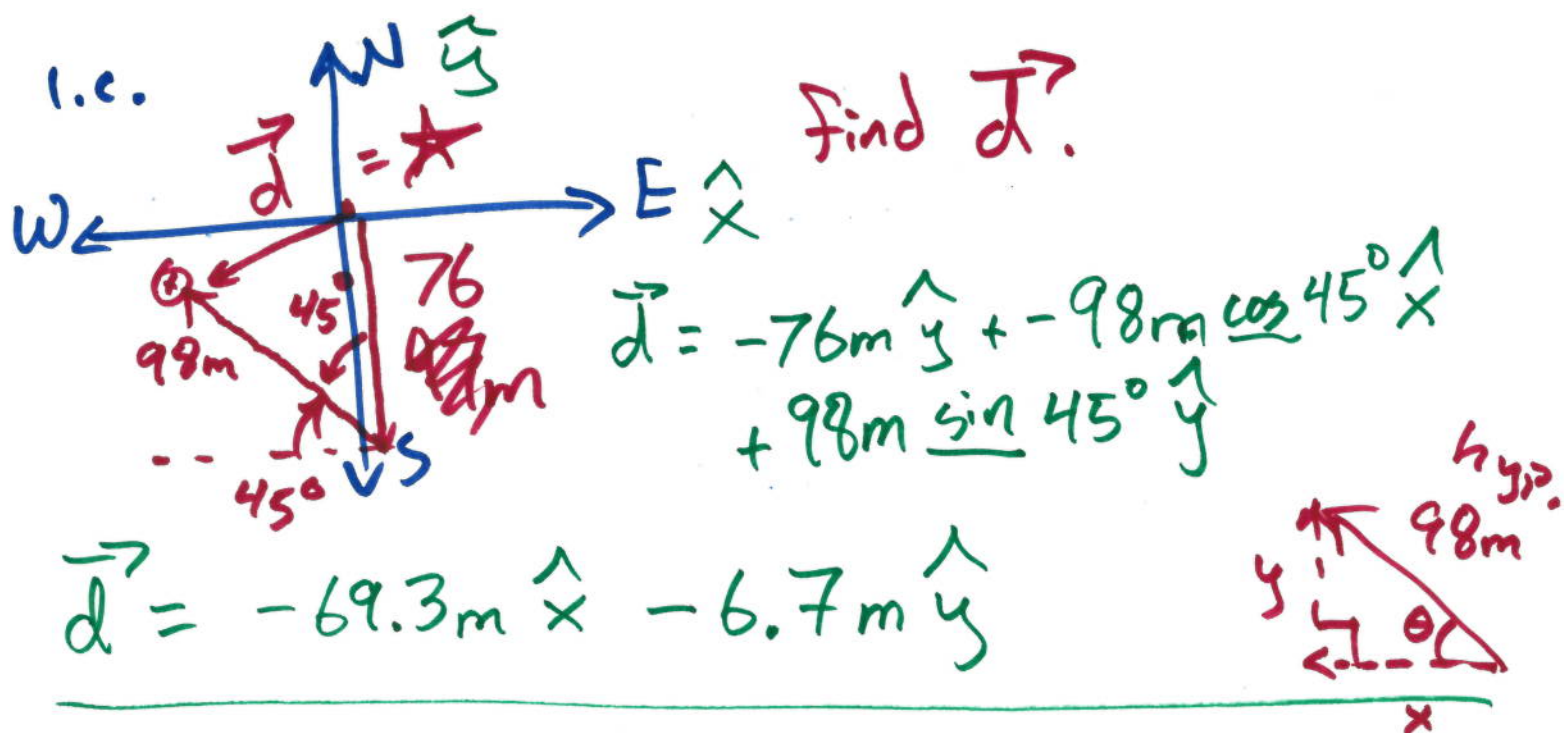 1.c.
N ŷ
d⃗ = ☆
find d⃗.
W
E x̂
45
76
m
98m
S
45°
d⃗ = -76m ŷ + -98m cos 45° x̂
+ 98m sin 45° ŷ
d⃗ = -69.3m x̂ - 6.7m ŷ
hyp.
98m
y
θ
x